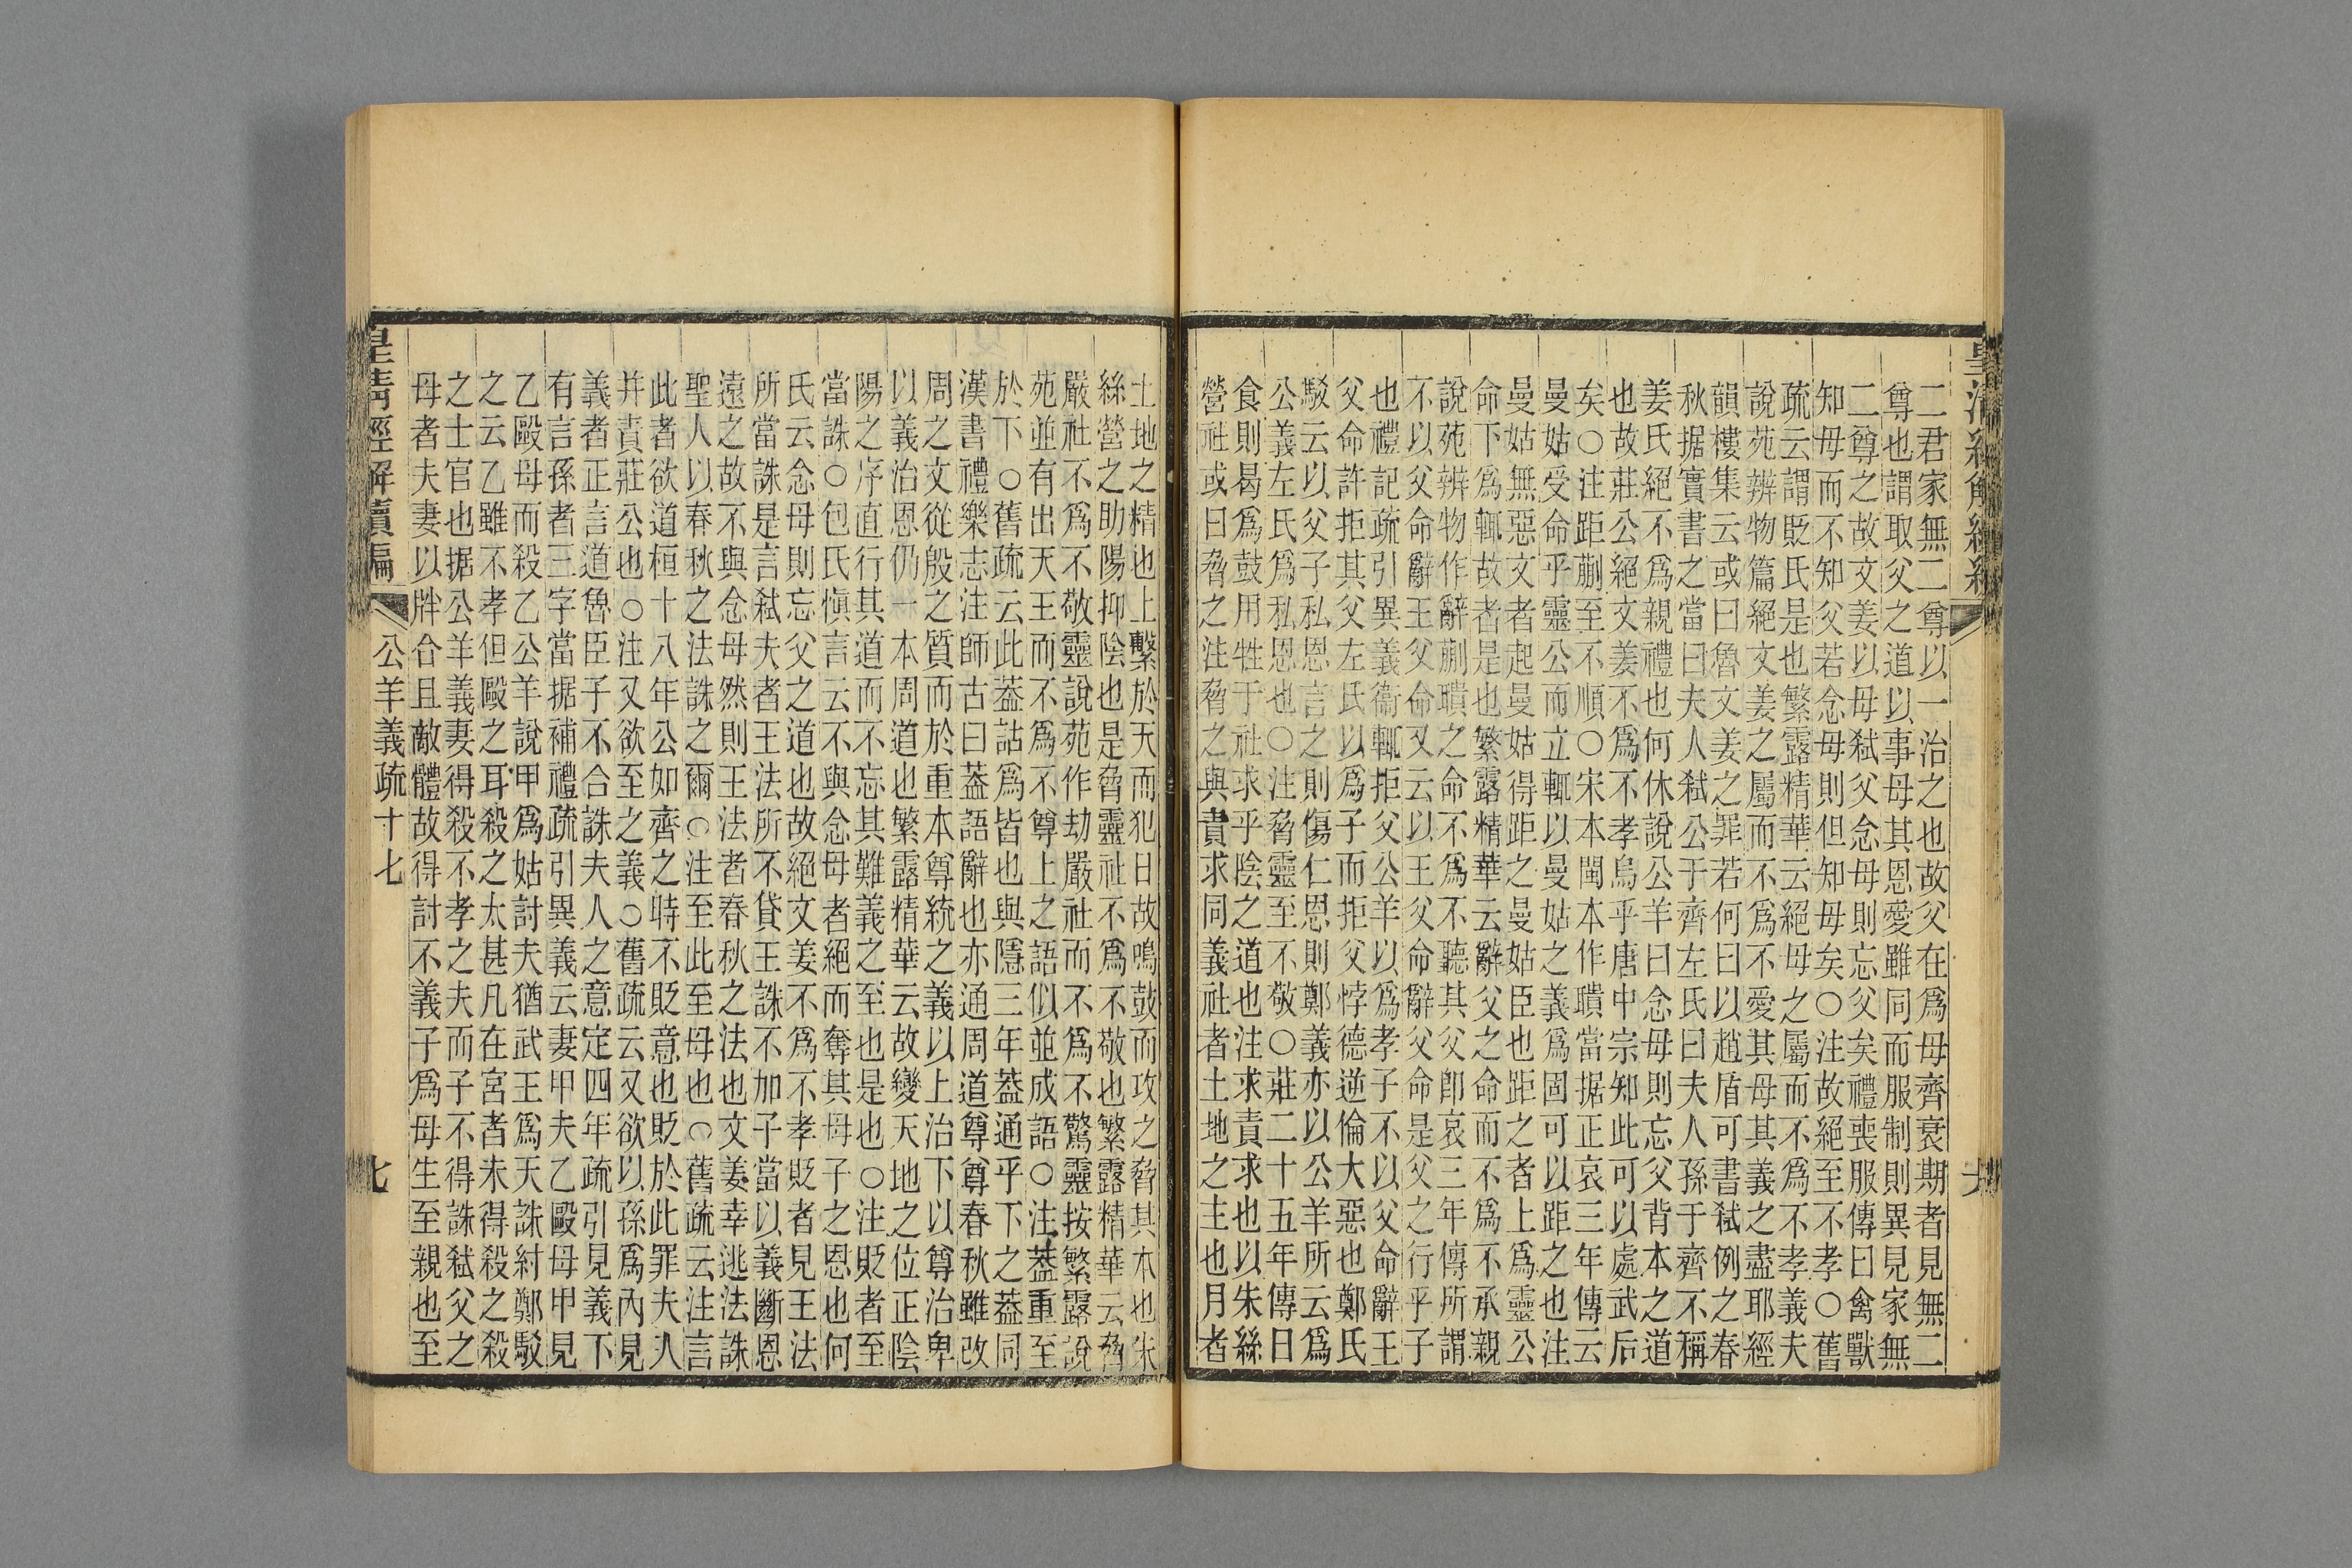 二君家無二尊以一治之也故父在爲母齊衰期者見無二
尊也謂取父之道以事母其恩愛雖同而服制則異見家無
二尊之故文姜以母弑父念母則忘父矣禮喪服傳曰禽獸
知母而不知父若念母則但知母矣○注故絕至不孝○舊
疏云謂貶氏是也繁露精華云絕母之屬而不爲不孝義夫
說苑辨物篇絕文姜之屬而不爲不愛其母其義之盡耶經
韻樓集云或曰魯文姜之罪若何曰以趙盾可書弑例之春
秋据實書之當曰夫人弑公于齊左氏曰夫人孫于齊不稱
姜氏絕不爲親禮也何休說公羊曰念母則忘父背本之道
也故莊公絕文姜不爲不孝烏乎唐中宗知此可以處武后
矣○注距蒯至不順○宋本閩本作聵當据正哀三年傳云
曼姑受命乎靈公而立輒以曼姑之義爲固可以距之也注
曼姑無惡文者起曼姑得距之曼姑臣也距之者上爲靈公
命下爲輒故者是也繁露精華云辭父之命而不爲不承親
說苑辨物作辭蒯聵之命不爲不聽其父卽哀三年傳所謂
不以父命辭王父命又云以王父命辭父命是父之行乎子
也禮記疏引異義衞輒拒父公羊以爲孝子不以父命辭王
父命許拒其父左氏以爲子而拒父悖德逆倫大惡也鄭氏
駁云以父子私恩言之則傷仁恩則鄭義亦以公羊所云爲
公義左氏爲私恩也○注脅靈至不敬○莊二十五年傳曰
食則曷爲鼓用牲于社求乎陰之道也注求責求也以朱絲
營社或曰脅之注脅之與責求同義社者土地之主也月者
土地之精也上繫於天而犯日故鳴鼓而攻之脅其本也朱
絲營之助陽抑陰也是脅靈社不爲不敬也繁露精華云脅
嚴社不爲不敬靈說苑作劫嚴社而不爲不驚靈按繁露說
苑並有出天王而不爲不尊上之語似並成語○注蓋重至
於下○舊疏云此蓋詁爲皆也與隱三年蓋通乎下之蓋同
漢書禮樂志注師古曰蓋語辭也亦通周道尊尊春秋雖改
周之文從殷之質而於重本尊統之義以上治下以尊治卑
以義治恩仍一本周道也繁露精華云故變天地之位正陰
陽之序直行其道而不忘其難義之至也是也○注貶者至
當誅○包氏愼言云不與念母者絕而奪其母子之恩也何
氏云念母則忘父之道也故絕文姜不爲不孝貶者見王法
所當誅是言弑夫者王法所不貸王誅不加子當以義斷恩
遠之故不與念母然則王法者春秋之法也文姜幸逃法誅
聖人以春秋之法誅之爾○注至此至母也○舊疏云注言
此者欲道桓十八年公如齊之時不貶意也貶於此罪夫人
并責莊公也○注又欲至之義○舊疏云又欲以孫爲內見
義者正言道魯臣子不合誅夫人之意定四年疏引見義下
有言孫者三字當据補禮疏引異義云妻甲夫乙毆母甲見
乙毆母而殺乙公羊說甲爲姑討夫猶武王爲天誅紂鄭駁
之云乙雖不孝但毆之耳殺之太甚凡在宮者未得殺之殺
之士官也据公羊義妻得殺不孝之夫而子不得誅弑父之
母者夫妻以牉合且敵體故得討不義子爲母生至親也至
皇清經解續編
公羊義疏十七
七